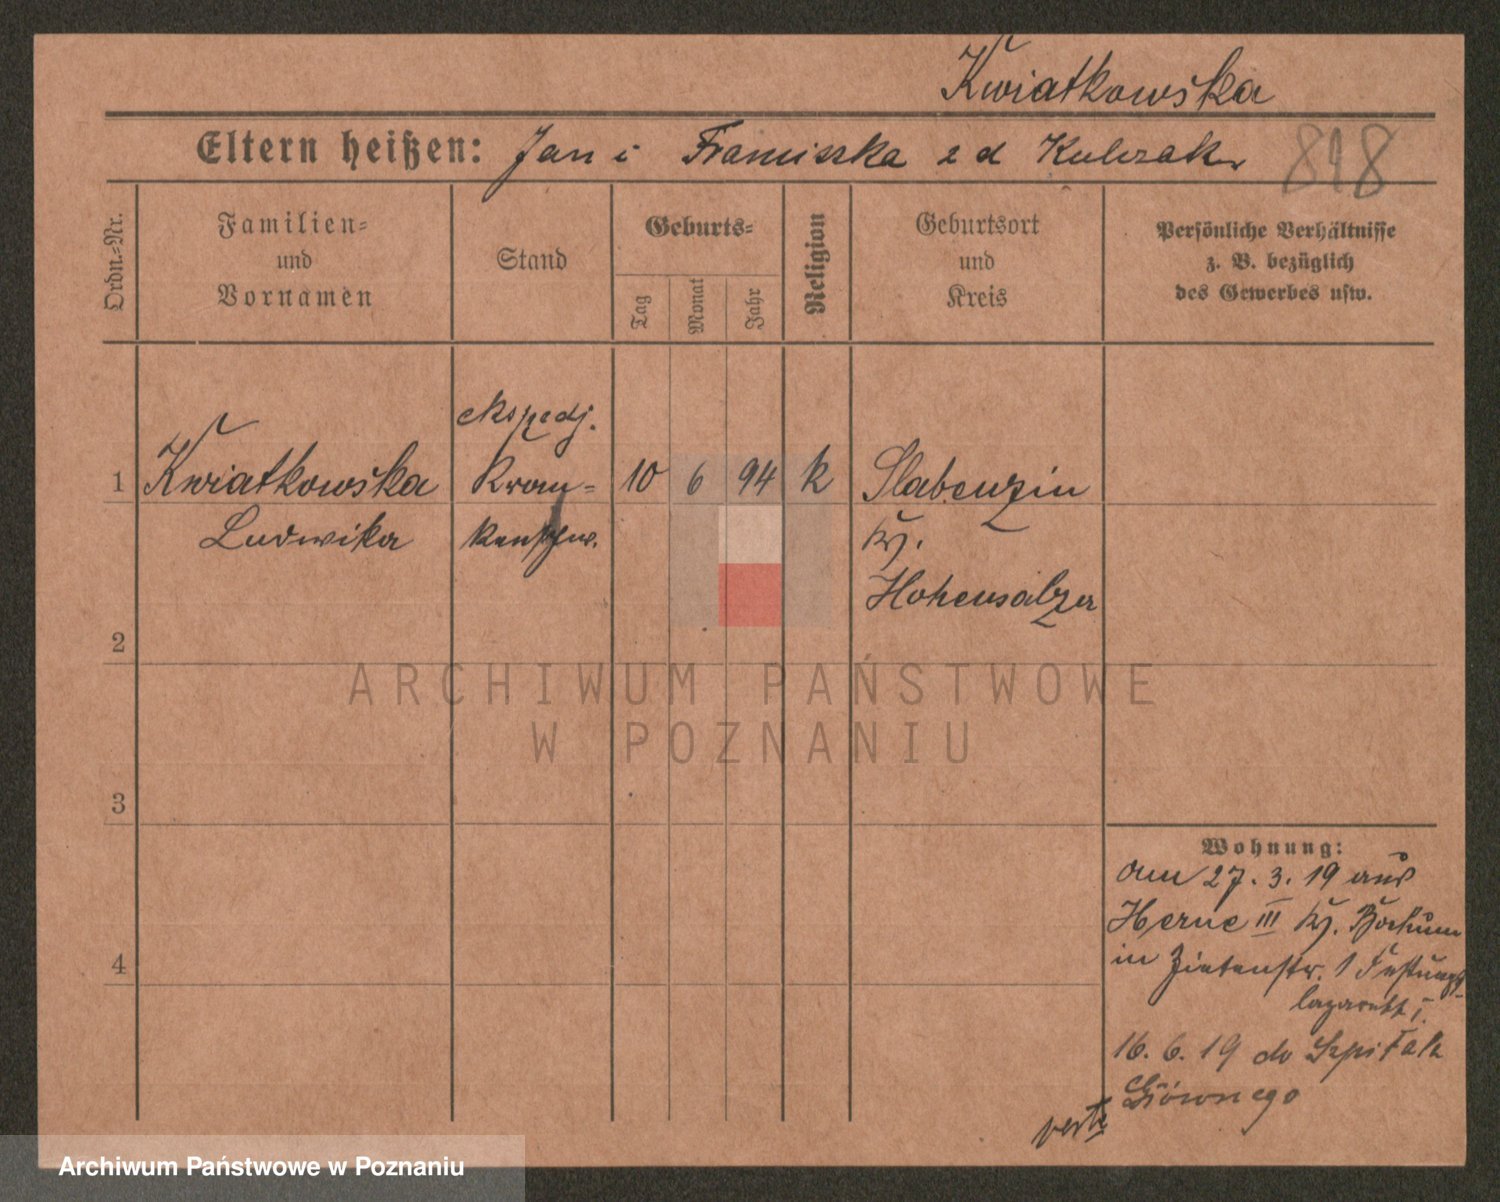 Kwiatkowska
Eltern heißen: Jan i Franciszka z d Kubzak 898
Ordn.-Nr.
Familien-
und
Vornamen
Stand
Geburts-
Tag
Monat
Jahr
Religion
Geburtsort
und
Kreis
Persönliche Verhältnisse
z. B. bezüglich
des Gewerbes usw.
ekspedj.
1 Kwiatkowska Kran= 10 6 94 k Slabenzin
Ludwika kenschw. Kr.
Hohensalza
2
ARCHIWUM PAŃSTWOWE
W POZNANIU
3
Wohnung:
am 27. 3. 19 aus
Herne III Kr. Bochum
4
in Zietenstr. 1 Festungs-
lazarett I.
16. 6. 19 do Szpitala
Głównego
verte
Archiwum Państwowe w Poznaniu